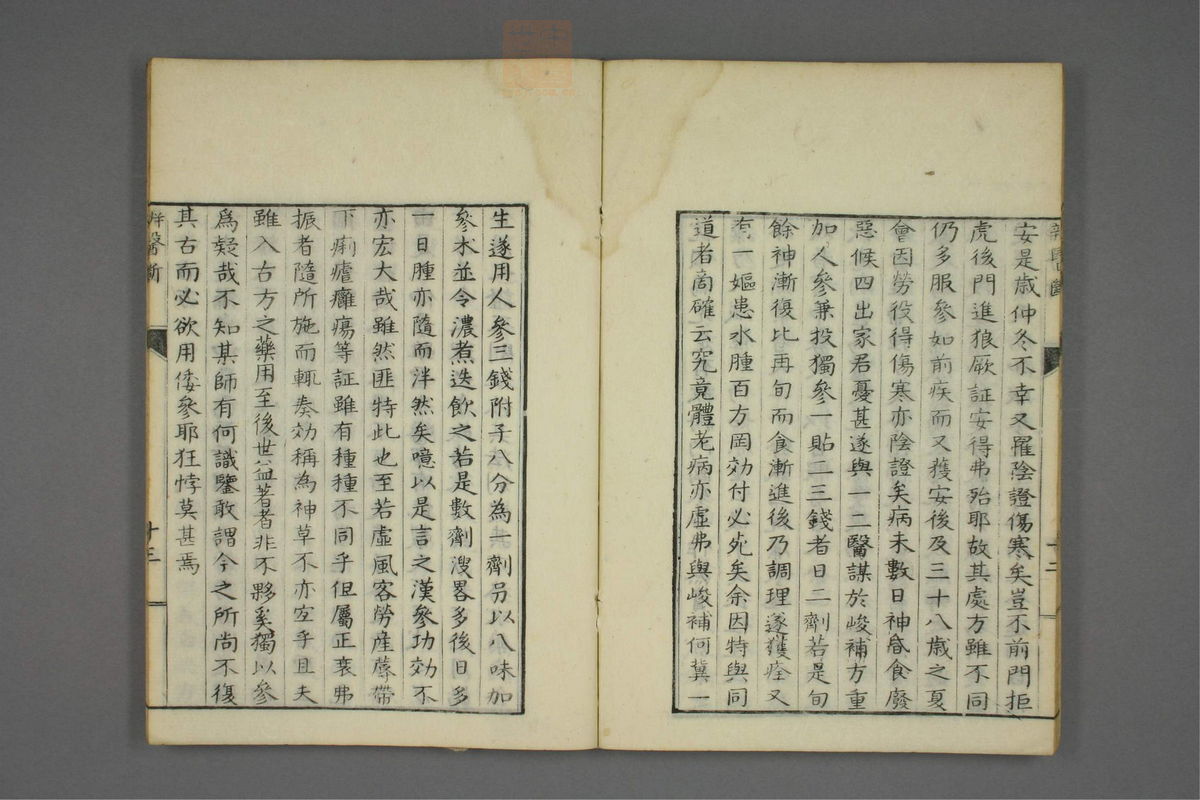 安是歲仲冬不幸又罹陰證傷寒矣豈不前門拒
虎後門進狼厥証安得弗殆耶故其處方雖不同
仍多服參如前疾而又獲安後及三十八歲之夏
會因勞役得傷寒亦陰證矣病未數日神昏食廢
惡候四出家君憂甚遂與一二醫謀於峻補方重
加人參兼投獨參一貼二三錢者日二劑若是旬
餘神漸復比再旬而食漸進後乃調理遂獲痊又
有一嫗患水腫百方罔効付必死矣余因特與同
道者商確云究竟體老病亦虛弗與峻補何冀一
生遂用人參三錢附子八分為一劑另以八味加
參朮並令濃煮迭飲之若是數劑溲畧多後日多
一日腫亦隨而泮然矣噫以是言之漢參功効不
亦宏大哉雖然匪特此也至若虛風客勞產蓐帶
下痢瘧癰瘍等証雖有種種不同乎但屬正衰弗
振者隨所施而輒奏効稱為神草不亦空乎且夫
雖入古方之藥用至後世益著者非不夥奚獨以參
爲疑哉不知某師有何識鑒敢謂今之所尚不復
其古而必欲用倭參耶狂悖莫甚焉
辨醫斷
十三